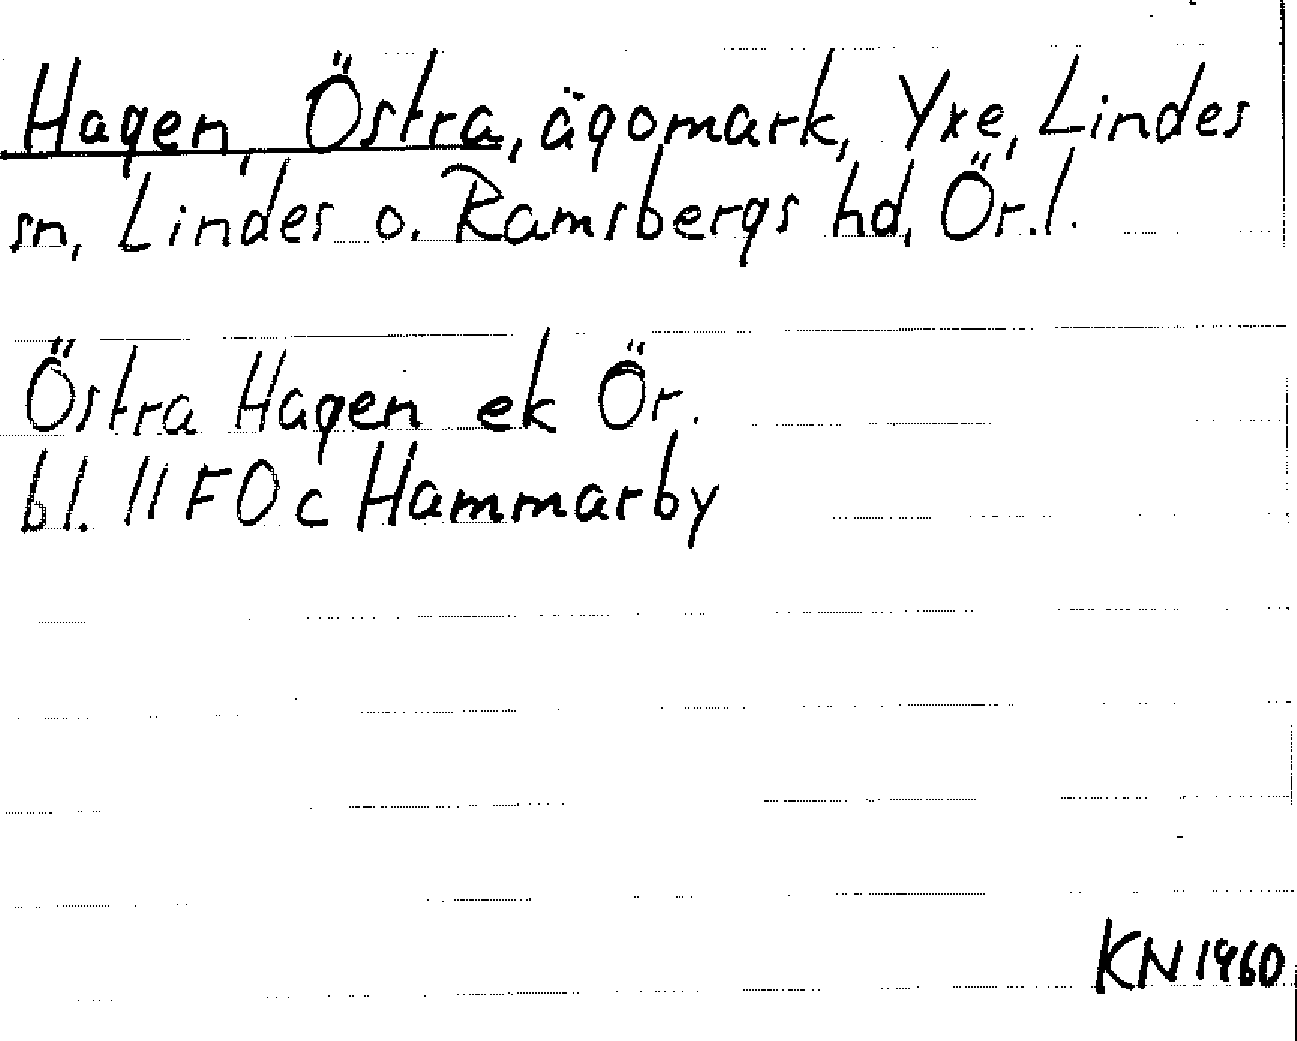 Hagen, Östra, ägomark, Yxe, Lindes
sn, Lindes o. Ramsbergs hd, Ör.l.
Östra Hagen ek Ör.
bl. 11 F0c Hammarby
KN 1960